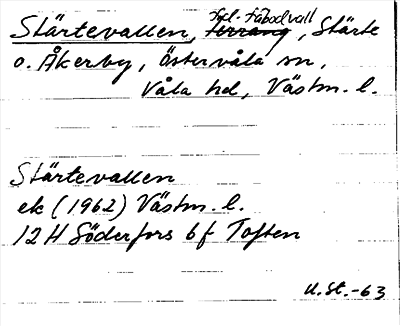 Stärtevallen, fpl. fäbodvall terräng, Stärte
o. Åkerby, Östervåla sn,
Våla hd, Västm. l.
Stärtevallen
ek (1962) Västm. l.
12 H Söderfors 6 f Toften
U.St.-63